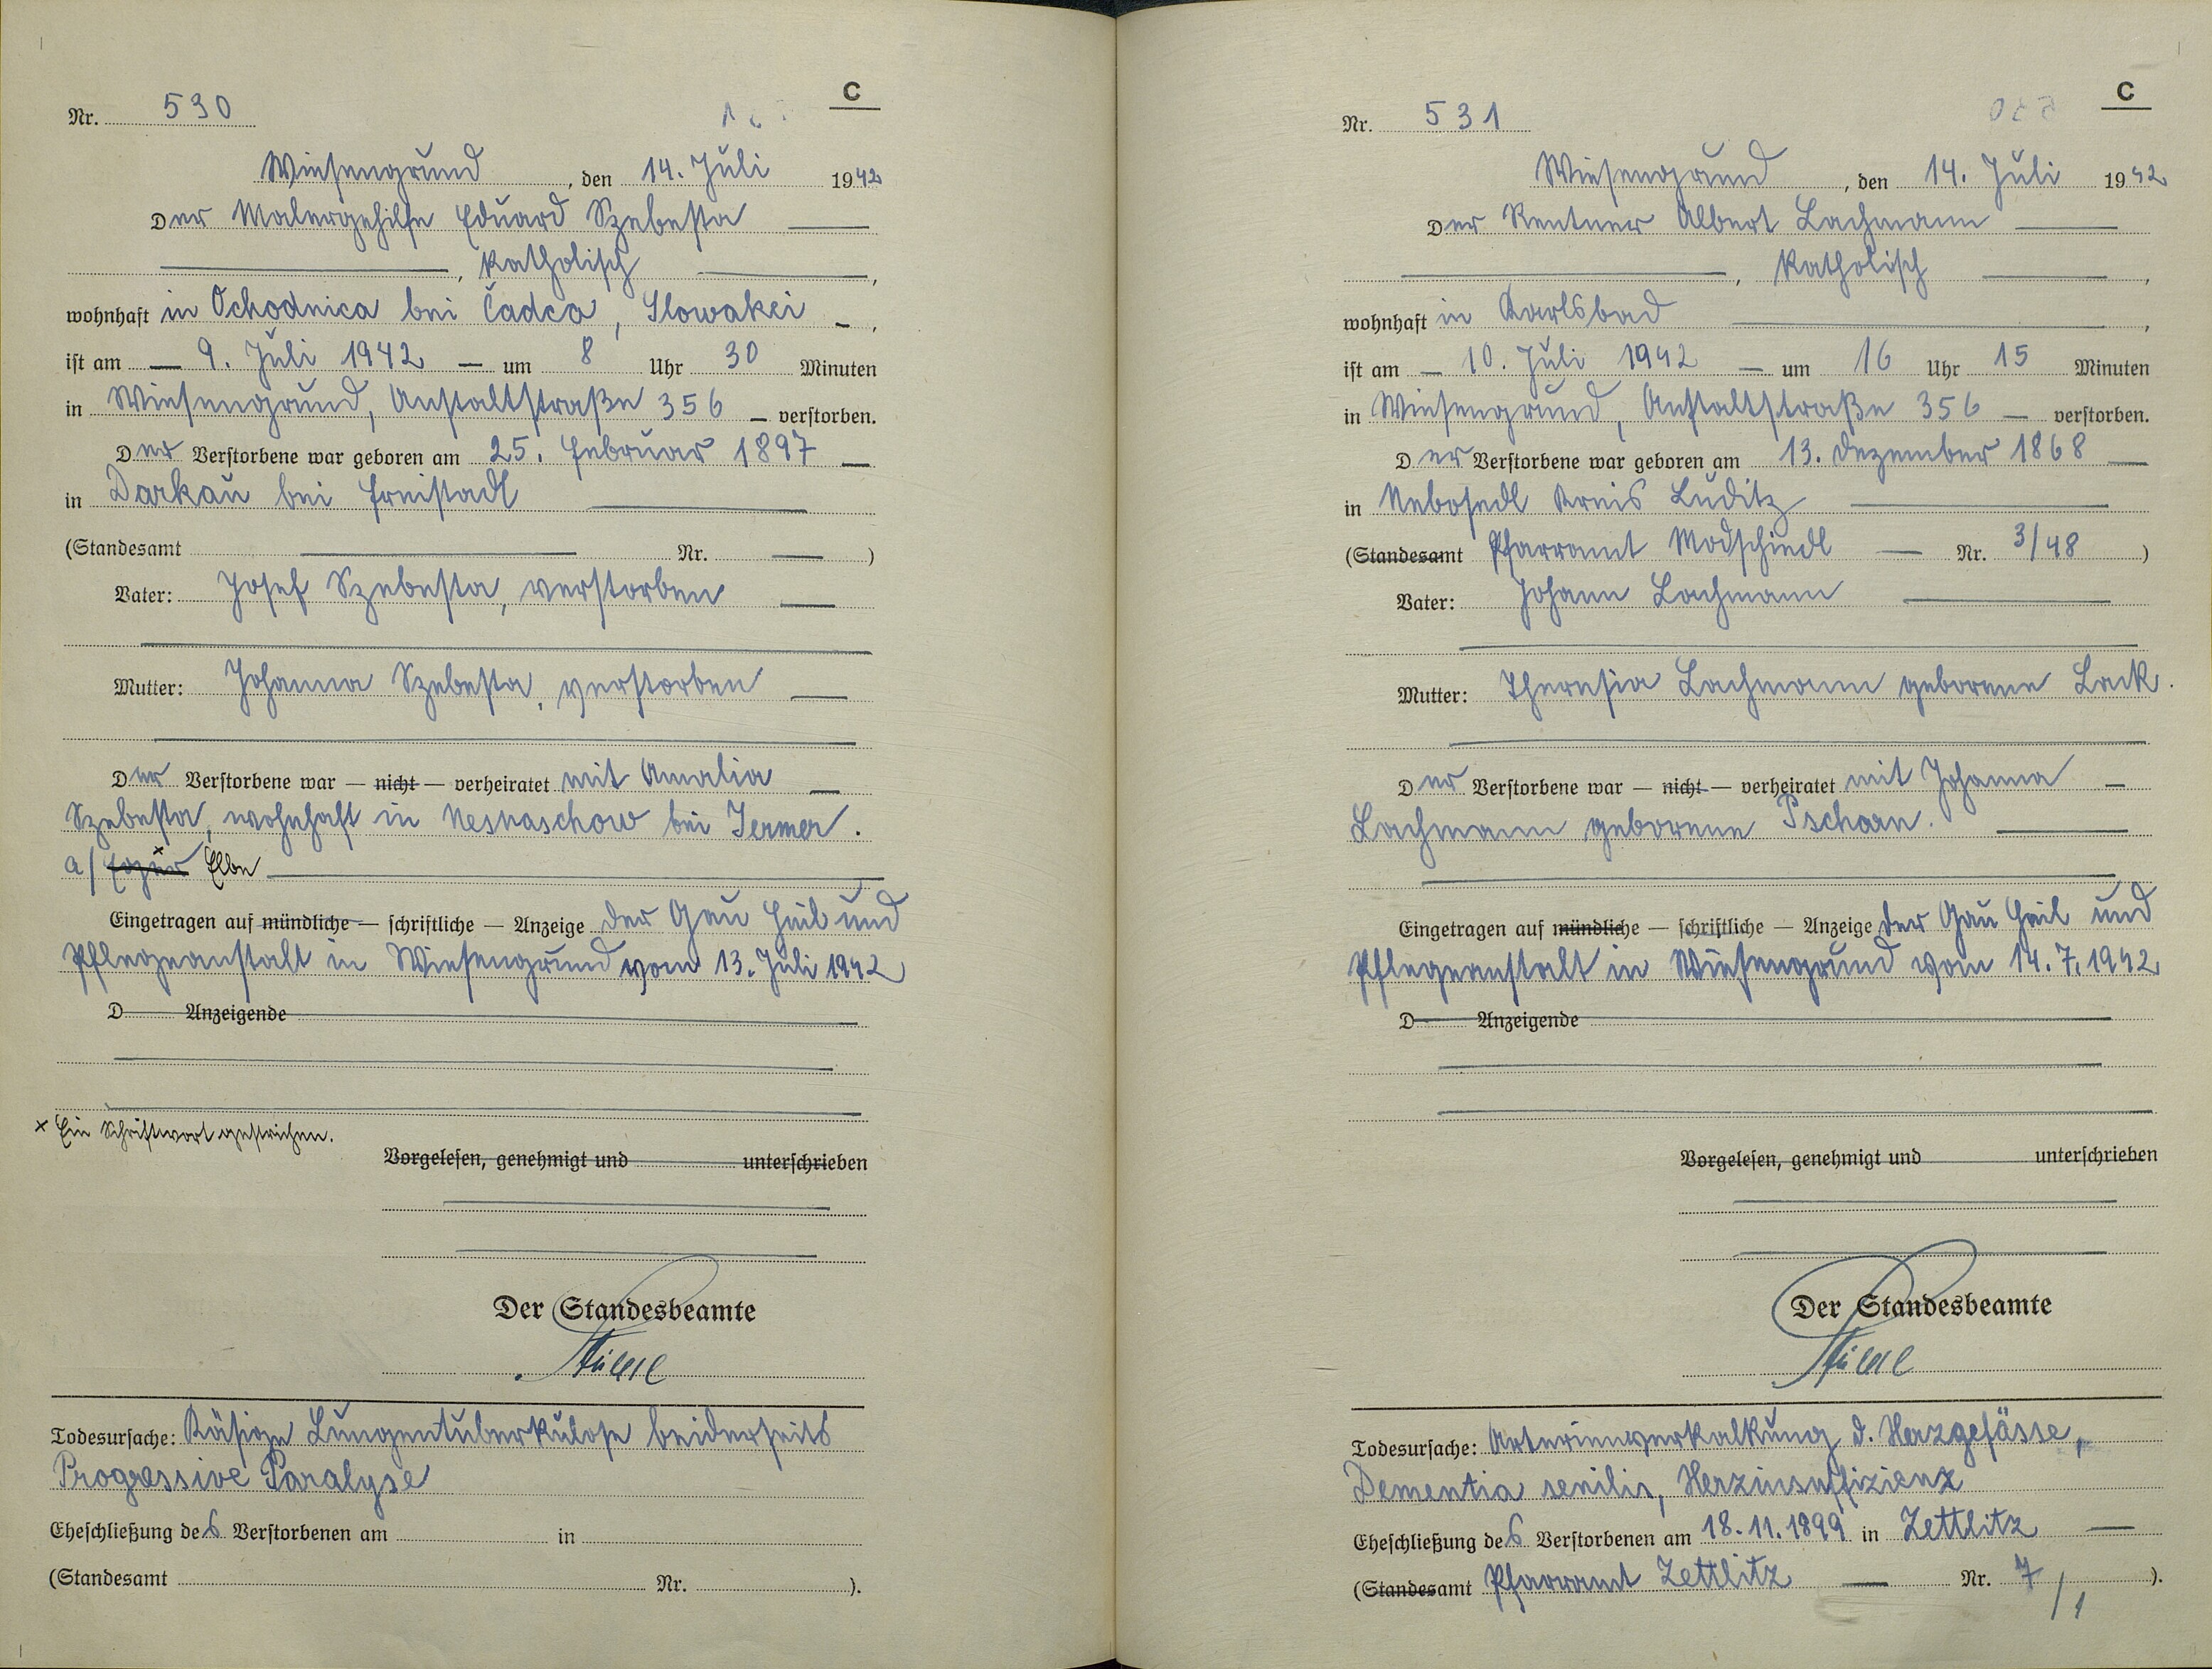 C
Nr. 530
Wiesengrund, den 14. Juli 1942
Der Malergehilfe Eduard Szebesta
, katholisch ,
wohnhaft in Ochodnica bei Čadca, Slowakei ,
ist am 9. Juli 1942 um 8 Uhr 30 Minuten
in Wiesengrund, Anstaltstraße 356 verstorben.
Der Verstorbene war geboren am 25. Februar 1897
in Darkau bei Freistadt
(Standesamt Nr. )
Vater: Josef Szebesta, verstorben
Mutter: Johanna Szebesta, verstorben
Der Verstorbene war — nicht — verheiratet mit Amalia
Szebesta, wohnhaft in Nesnaschow bei Jermer.
a/ Elbe
Eingetragen auf mündliche — schriftliche — Anzeige der Gau Heil und
Pflegeanstalt in Wiesengrund vom 13. Juli 1942
D Anzeigende
x Ein Schriftwort gestrichen.
Vorgelesen, genehmigt und unterschrieben
Der Standesbeamte
Todesursache: Käsige Lungentuberkulose beiderseits
Progressive Paralyse
Eheschließung des Verstorbenen am in
(Standesamt Nr. ).
C
Nr. 531
Wiesengrund, den 14. Juli 1942
Der Rentner Albert Lachmann
, katholisch ,
wohnhaft in Karlsbad ,
ist am 10. Juli 1942 um 16 Uhr 15 Minuten
in Wiesengrund, Anstaltstraße 356 verstorben.
Der Verstorbene war geboren am 13. Dezember 1868
in Nebosedl Kreis Luditz
(Standesamt Pfarramt Modschiedl Nr. 3/48 )
Vater: Johann Lachmann
Mutter: Theresia Lachmann geborene Leck.
Der Verstorbene war — nicht — verheiratet mit Johanna
Lachmann geborene Pscharn.
Eingetragen auf mündliche — schriftliche — Anzeige der Gau Heil und
Pflegeanstalt in Wiesengrund vom 14. 7. 1942
D Anzeigende
Vorgelesen, genehmigt und unterschrieben
Der Standesbeamte
Todesursache: Arterienverkalkung d. Herzgefässe,
Dementia senilis, Herzinsuffizienz
Eheschließung des Verstorbenen am 18.11.1899 in Zettlitz
(Standesamt Pfarramt Zettlitz Nr. 7/1 ).